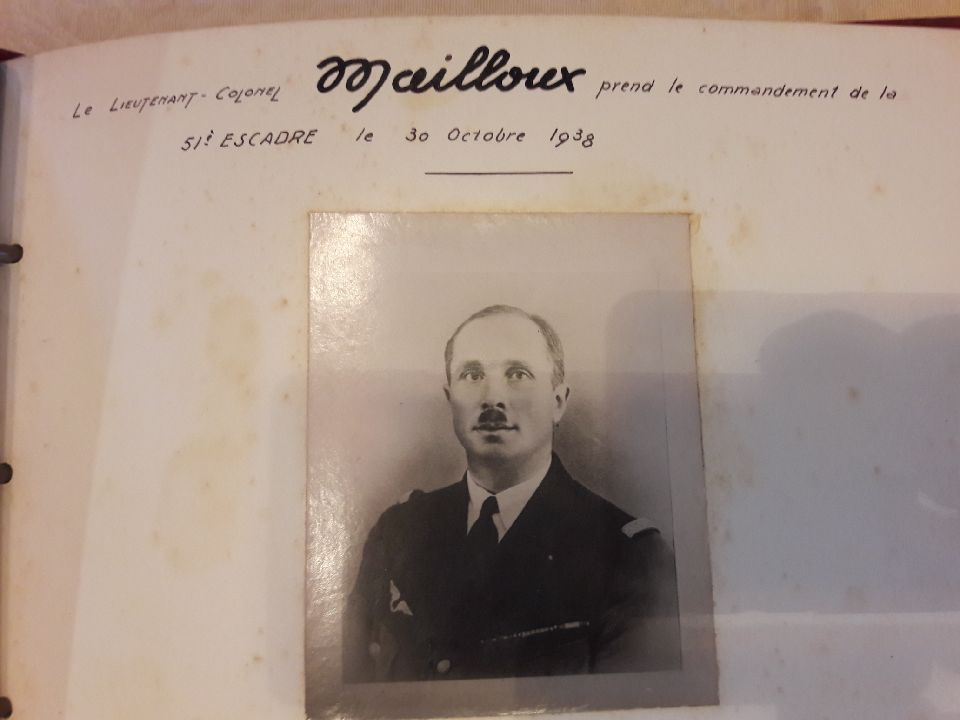 Le LIEUTENANT-COLONEL Mailloux prend le commandement de la
51è ESCADRE le 30 Octobre 1938